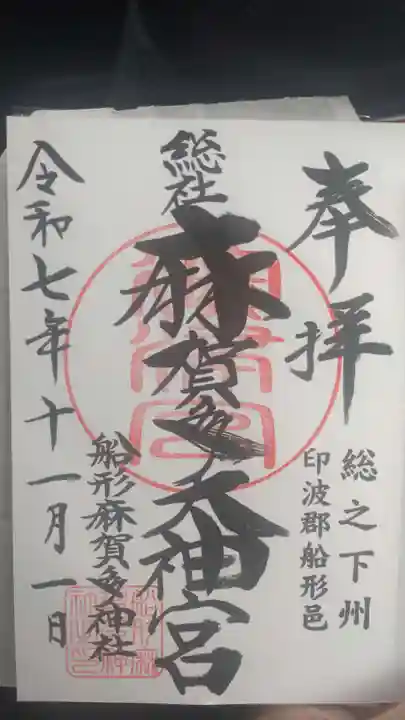 奉拝
総之下州
印波郡船形邑
総社
麻賀多大神宮
船形麻賀多神社
令和七年十一月一日